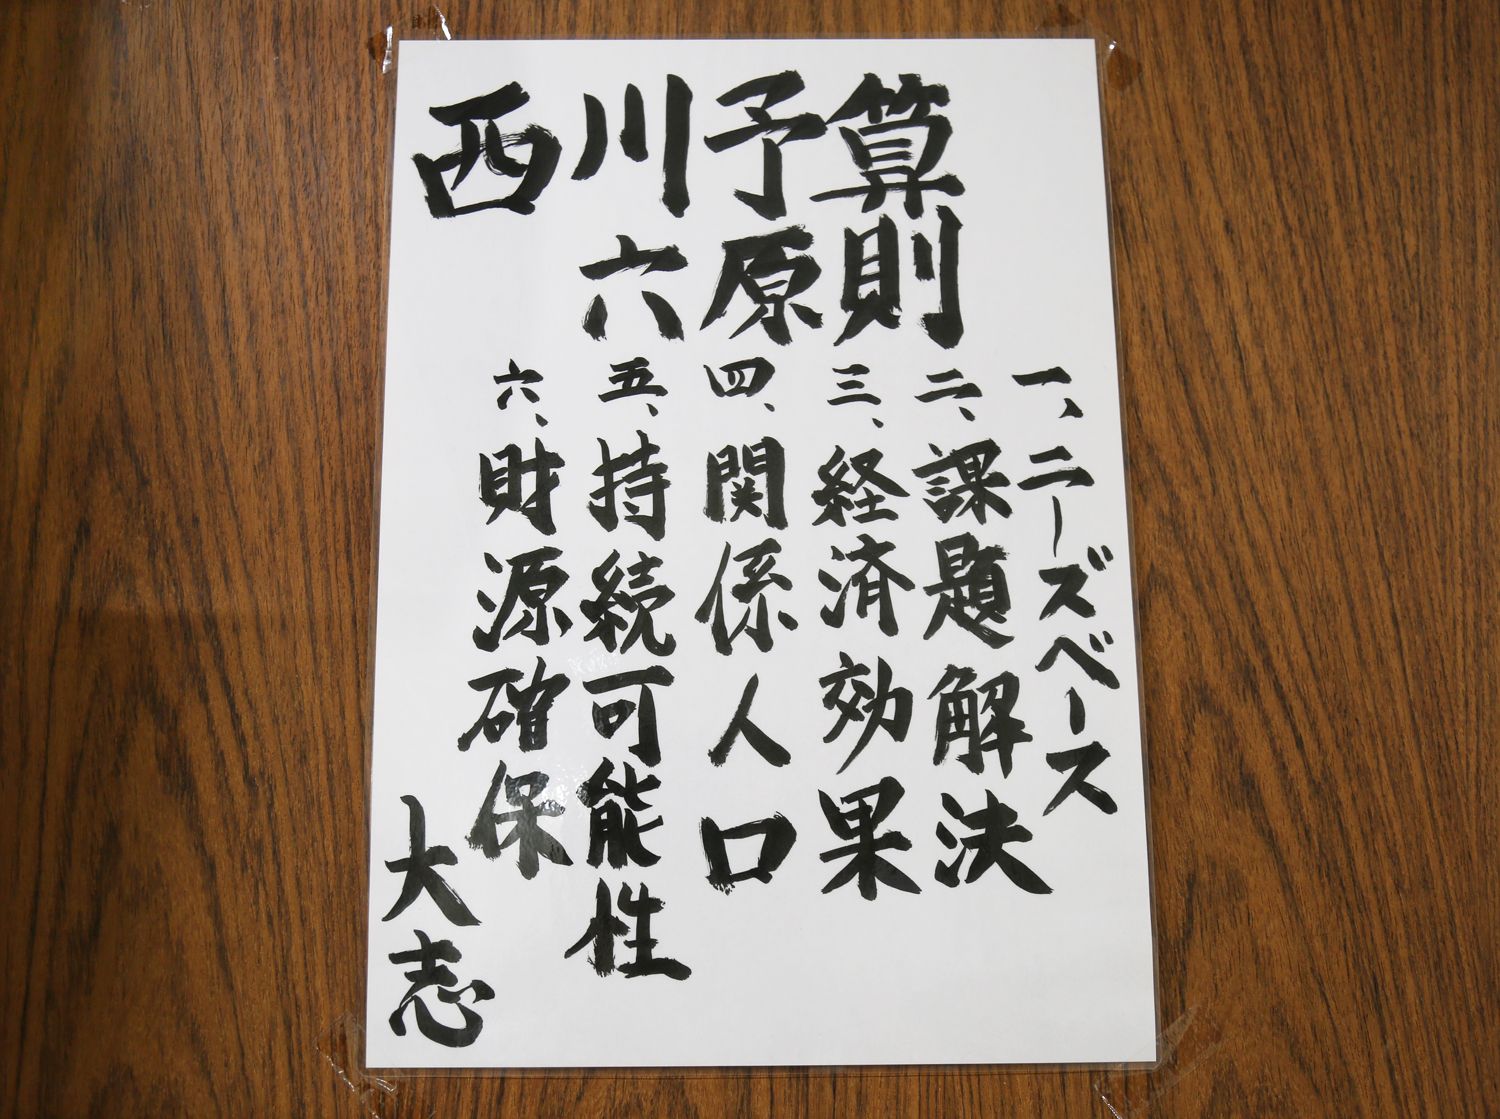 西川予算
六原則
一、ニーズベース
二、課題解決
三、経済効果
四、関係人口
五、持続可能性
六、財源確保
大志